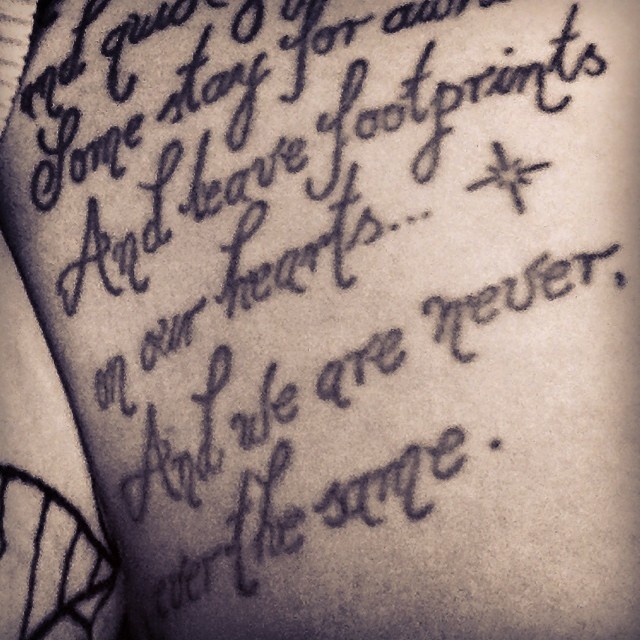 And
Some stay for
And leave footprints
on our hearts...
And We are never,
ever the same.